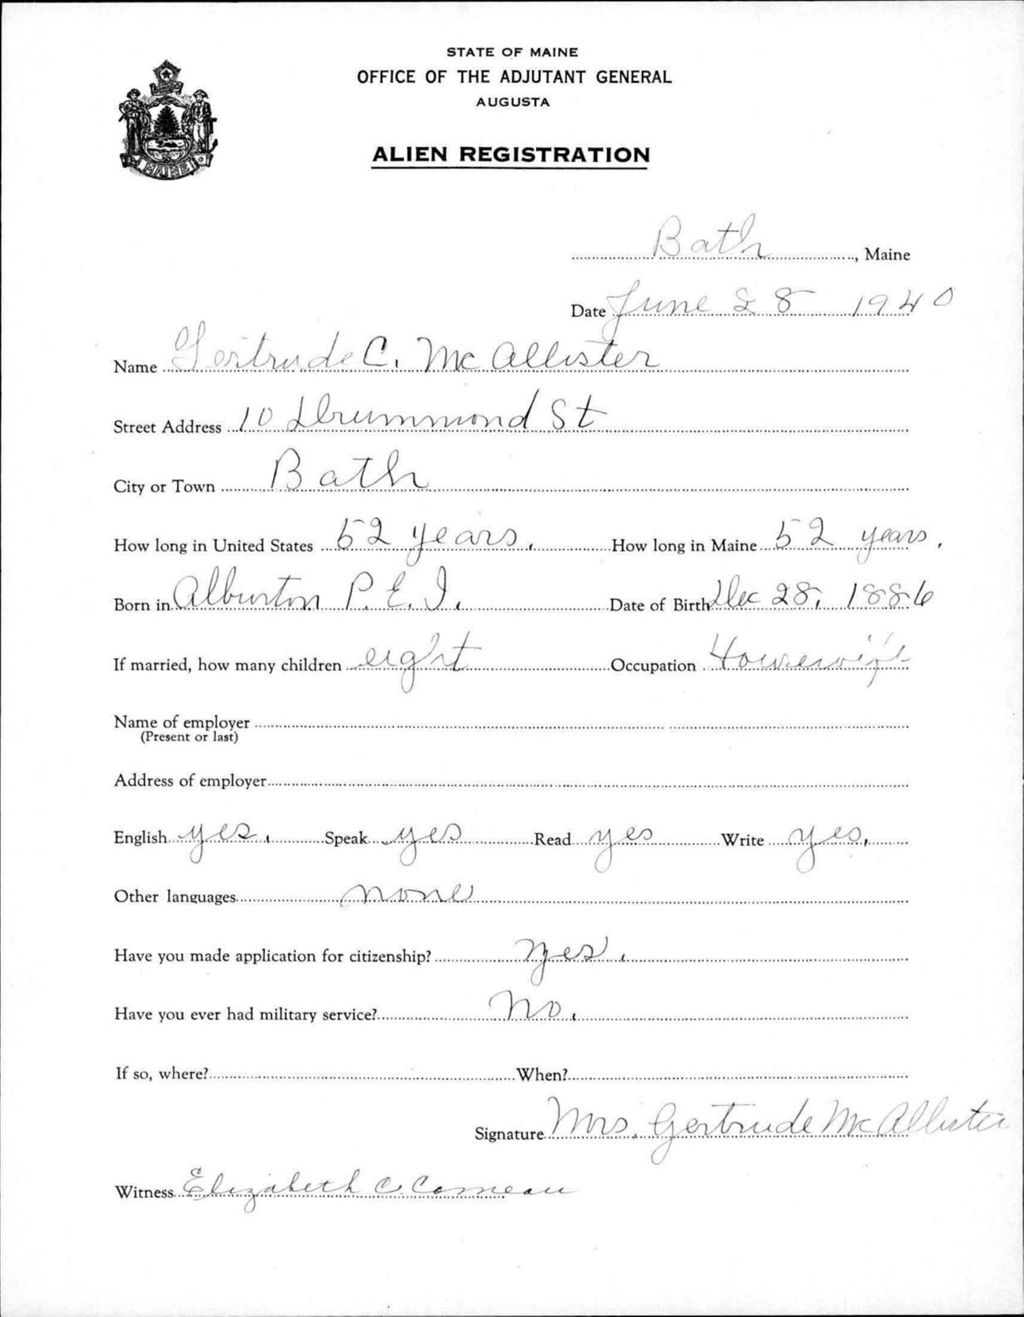 STATE OF MAINE
OFFICE OF THE ADJUTANT GENERAL
AUGUSTA
ALIEN REGISTRATION
MAINE
Bath, Maine
Date June 28 1940
Name Gertrude C. McAllister
Street Address 10 Drummond St
City or Town Bath
How long in United States 52 years. How long in Maine 52 years.
Born in Alburton P.E.I. Date of Birth Dec 28, 1886
If married, how many children eight Occupation Housewife
Name of employer
(Present or last)
Address of employer
English yes. Speak yes Read yes Write yes.
Other languages none
Have you made application for citizenship? yes.
Have you ever had military service? No.
If so, where? When?
Signature Mrs. Gertrude McAllister
Witness Elizabeth C. Comeau